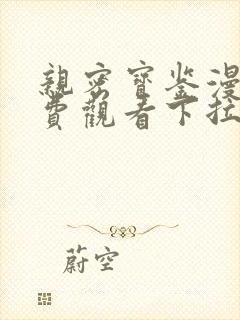 親密寶鉴漫
費觀看下拉
蔚空